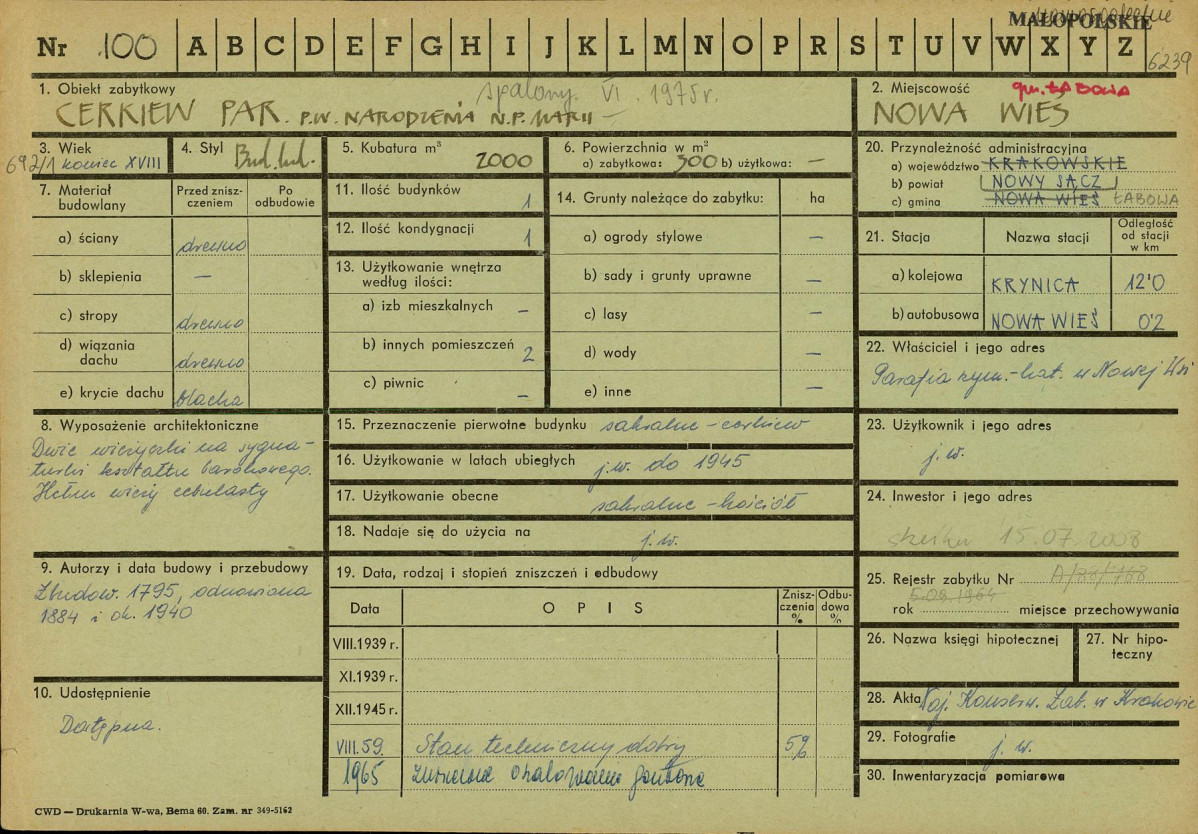 MAŁOPOLSKIE
Nr 100 A B C D E F G H I J K L M N O P R S T U V W X Y Z
6239
1. Obiekt zabytkowy
spalony VI. 1975r.
CERKIEW PAR. P.W. NARODZENIA N.P. MARII —
2. Miejscowość
gm. ŁABOWA
NOWA WIEŚ
3. Wiek
692/1 koniec XVIII
4. Styl Bud. lud.
5. Kubatura m³
2000
6. Powierzchnia w m²
a) zabytkowa: 300 b) użytkowa: —
20. Przynależność administracyjna
a) województwo KRAKOWSKIE
b) powiat NOWY SĄCZ
c) gmina NOWA WIEŚ ŁABOWA
7. Materiał budowlany
Przed zniszczeniem
Po odbudowie
a) ściany drewno
b) sklepienia —
c) stropy drewno
d) wiązania dachu drewno
e) krycie dachu blacha
11. Ilość budynków 1
12. Ilość kondygnacji 1
13. Użytkowanie wnętrza
według ilości:
a) izb mieszkalnych —
b) innych pomieszczeń 2
c) piwnic —
14. Grunty należące do zabytku: ha
a) ogrody stylowe —
b) sady i grunty uprawne —
c) lasy —
d) wody —
e) inne —
21. Stacja
Nazwa stacji
Odległość
od stacji
w km
a) kolejowa KRYNICA 12'0
b) autobusowa NOWA WIEŚ 0'2
22. Właściciel i jego adres
Parafia rzym.-kat. w Nowej Wsi
8. Wyposażenie architektoniczne
Dwie wieżyczki na sygna-
turki kształtu barokowego.
Hełm wieży cebulasty
15. Przeznaczenie pierwotne budynku sakralne - cerkiew
16. Użytkowanie w latach ubiegłych j.w. do 1945
17. Użytkowanie obecne sakralne - kościół
18. Nadaje się do użycia na j.w.
23. Użytkownik i jego adres
j.w.
24. Inwestor i jego adres
15.07.2008
9. Autorzy i data budowy i przebudowy
Zbudow. 1795, odnowiona
1884 i ok. 1940
19. Data, rodzaj i stopień zniszczeń i odbudowy
Data
OPIS
Zniszczenia %
Odbudowa %
VIII.1939 r.
XI.1939 r.
XII.1945 r.
VIII.59. Stan techniczny dobry 5%
1965
25. Rejestr zabytku Nr A/88/168
5.08.1964
rok miejsce przechowywania
26. Nazwa księgi hipotecznej
27. Nr hipo-
teczny
10. Udostępnienie
Dostępna.
28. Akta Woj. Konserw. Zab. w Krakowie
29. Fotografie j.w.
30. Inwentaryzacja pomiarowa
CWD — Drukarnia W-wa, Bema 60. Zam. nr 349-5162